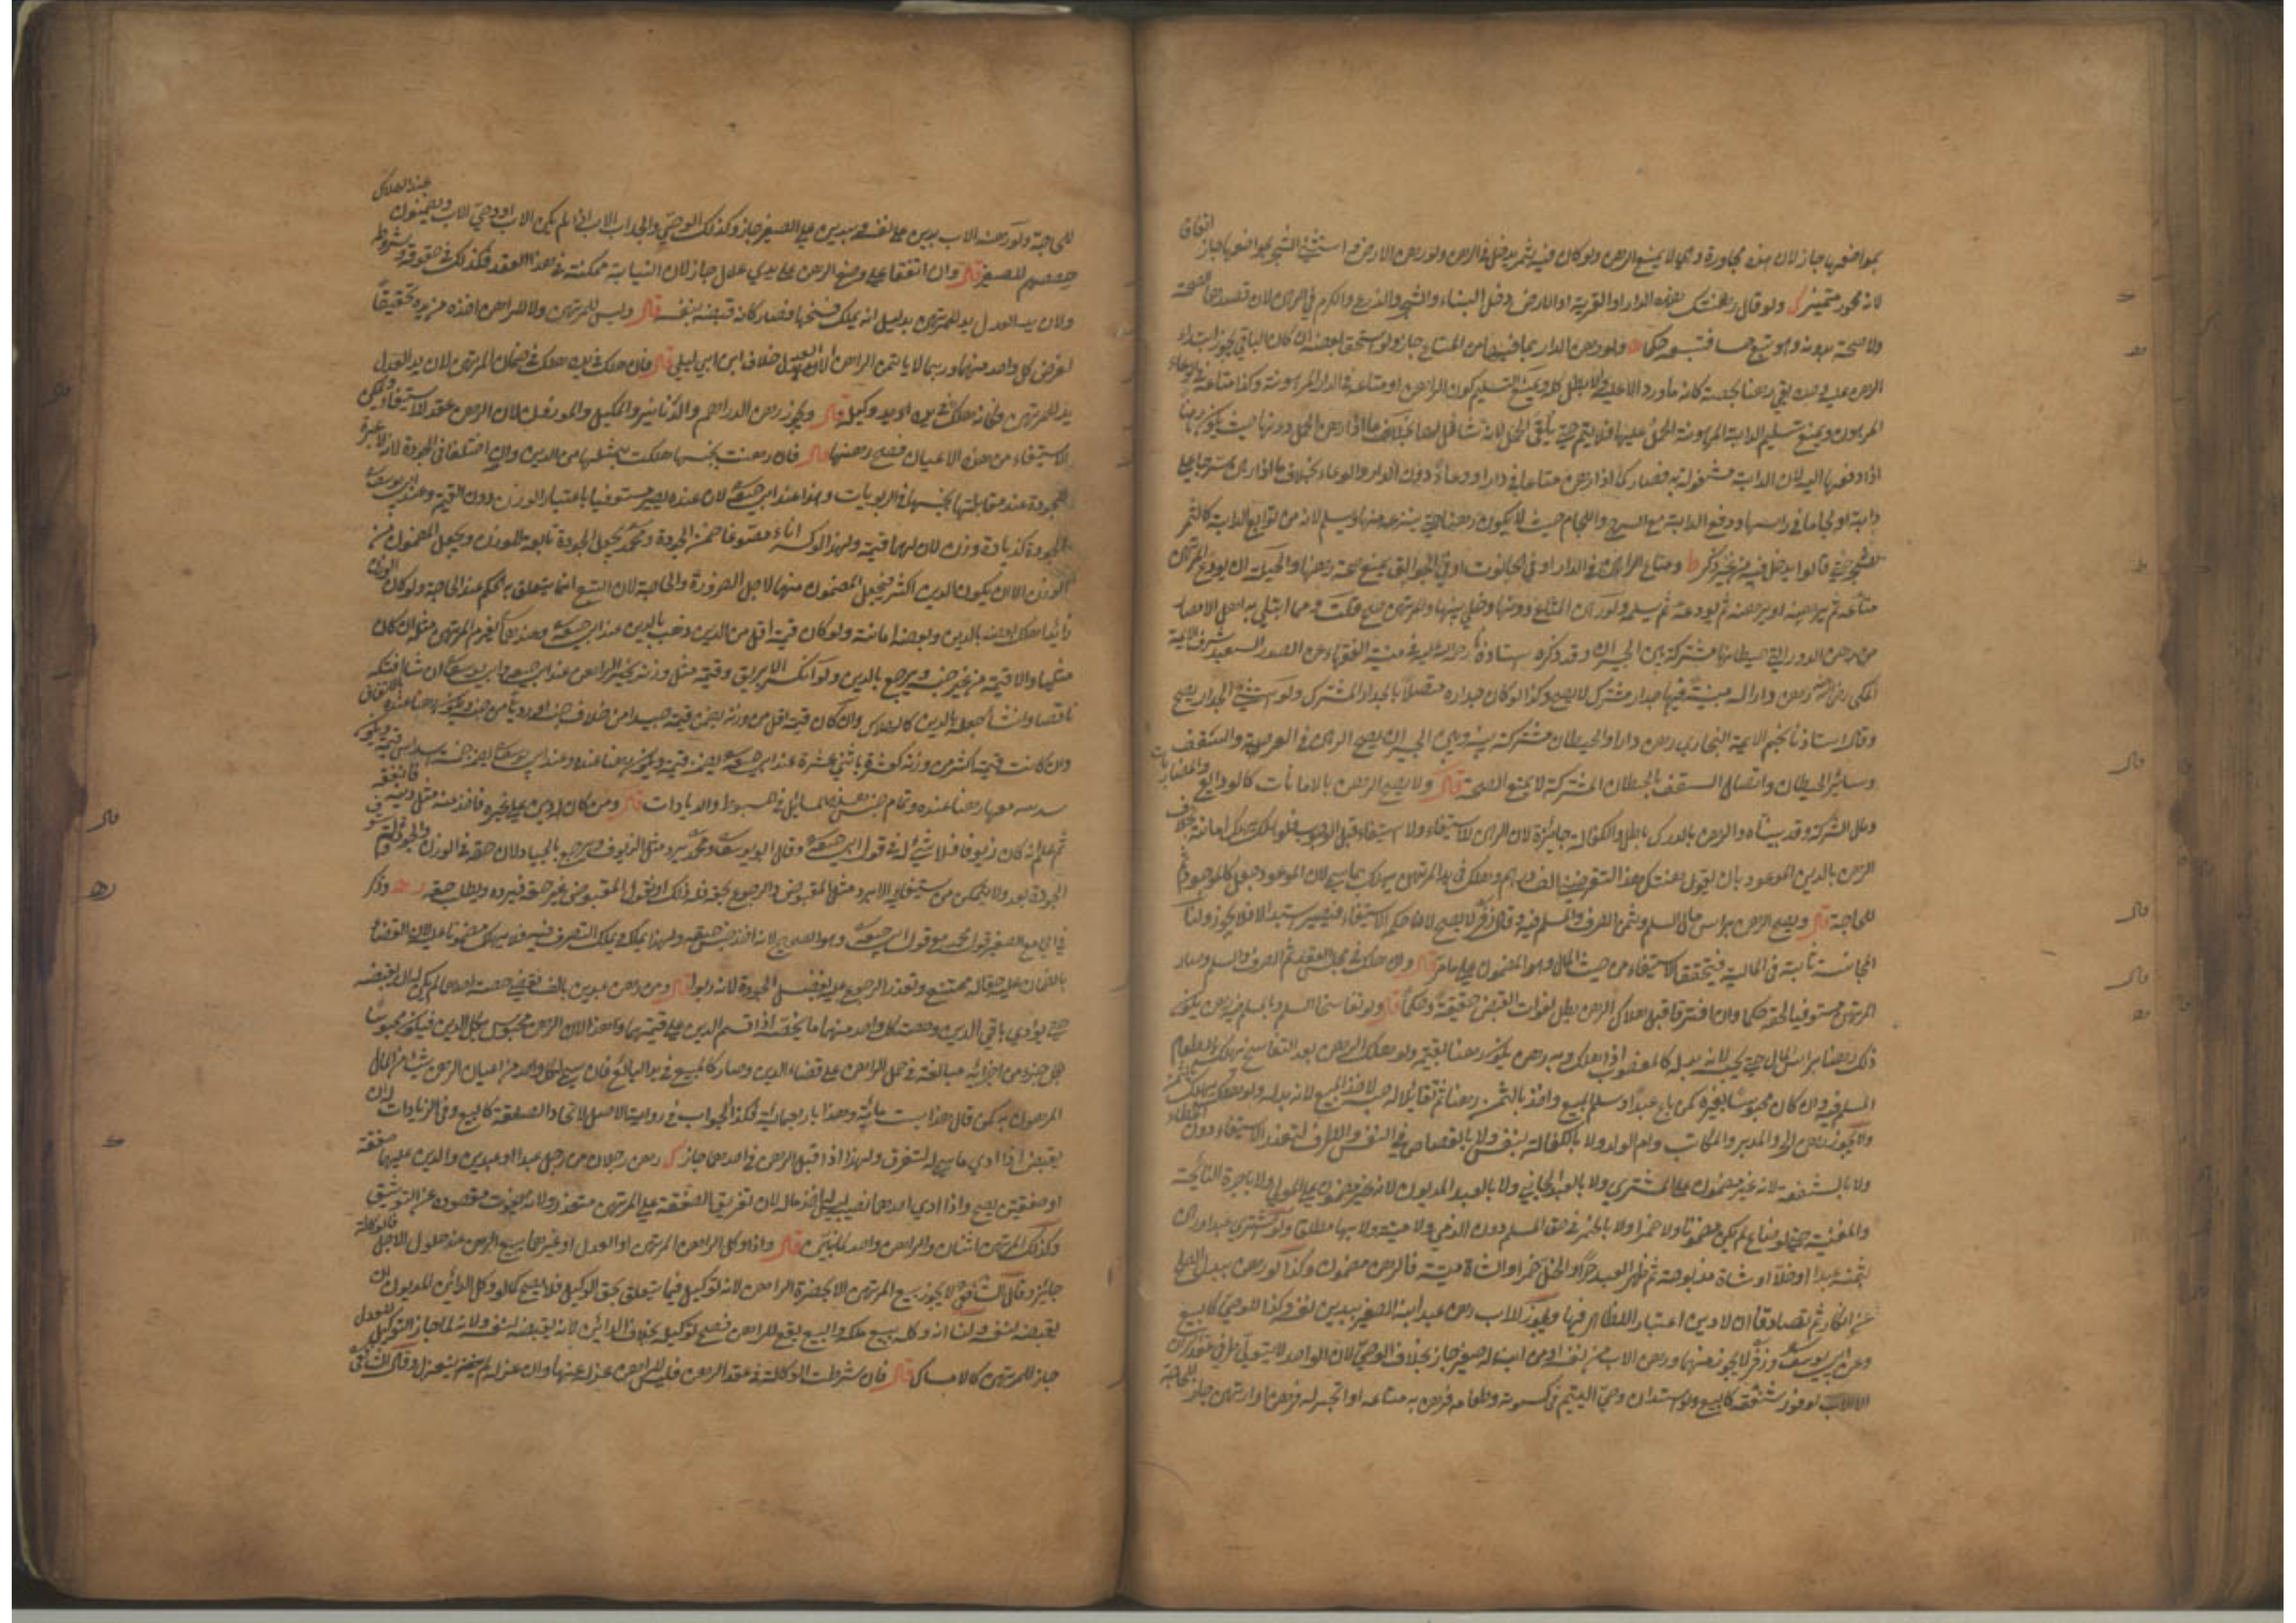 بمواضعها جاز لان هذه مجاورة وهي لا يمنع الرهن ولو كان فيه ثمر يدخل في الرهن ولو رهن الارض واستثنى الشجر بمواضعها جاز
لانه مجوز متميز ولو قال رهنتك هذه الدار او القرية او الارض دخل البناء والشجر والزرع والكرم في الرهن لان قصدهما الصحة
ولا صحة بدونه وهو تبع حسا فتبعه حكما ولو رهن الدار بما فيها من المتاع جاز ولو استحق بعضه ان كان الباقي يجوز ابتداء
الرهن عليه وحده بقي رهنا بحصته كانه ما ورد الا عليه والا بطل كله ويمنع التسليم كون الراهن او متاعه في الدار المرهونة وكذا متاعه في الوعاء
المرهون ويمنع تسليم الدابة المرهونة الحمل عليها فلا يتم حتى يلقى الحمل لانه شاغل لها بخلاف ما اذا رهن الحمل دونها حيث يكون رهنا
اذا دفعها اليه لان الدابة مشغولة به فصار كما اذا رهن متاعا في دار او وعاء دون الدار والوعاء بخلاف ما اذا رهن سرجا على
دابة او لجاما في راسها ودفع الدابة مع السرج واللجام حيث لا يكون رهنا حتى ينزعه منها ويسلم لانه من توابع الدابة كالثمر
للشجر حتى قالوا يدخل فيه من غير ذكر ومتاع الراهن في الدار او في الحانوت او في الجوالق يمنع صحة رهنها والحيلة ان يودع المرتهن
متاعه ثم يرهنه او يرهنه ثم يودعه ثم يسلم ولو رهن المتاع دونها وخلى بينها والمرتهن صح قلت ومما ابتلي به اهل الامصار
من رهن الدور التي حيطانها مشتركة بين الجيران وقد ذكره استاذنا رحمه الله في منية الفقهاء عن الصدر السعيد شرف الائمة
المكي رهن دارا له مبنية فيها جدار مشترك لا يصح وكذا لو كان جداره متصلا بالجدار المشترك ولو استثنى الجدار يصح
وقال استاذنا نجم الائمة البخاري رهن دارا والحيطان مشتركة بينه وبين الجيران يصح الرهن في العرصة والسقف
وسائر الحيطان واتصال السقف بالحيطان المشتركة لا يمنع الصحة قال ولا يصح الرهن بالامانات كالودائع والمضاربات
ومال الشركة وقد بيناه والرهن بالدرك باطل والكفالة جائزة لان الرهن للاستيفاء ولا استيفاء قبل الوجوب فلو هلك يهلك امانة بخلاف
الرهن بالدين الموعود بان يقول رهنتك هذا لتقرضني الف درهم وهلك في يد المرتهن يهلك بما سمي لان الموعود جعل كالموجود
للحاجة قال ويصح الرهن براس مال السلم وثمن الصرف والمسلم فيه وقال زفر لا يصح لان حكمه الاستيفاء فيصير استبدالا فلا يجوز ولنا
المجانسة ثابتة في المالية فيتحقق الاستيفاء من حيث المال وهو المضمون على ما مر قال وان هلك في مجلس العقد تم الصرف والسلم وصار
المرتهن مستوفيا لحقه حكما وان افترقا قبل هلاك الرهن بطل لفوات القبض حقيقة وحكما قال ولو تفاسخا السلم وبالمسلم فيه رهن يكون
ذلك رهنا براس المال حتى يحبسه لانه بدله كالمغصوب اذا هلك وبه رهن يكون رهنا بقيمته ولو هلك الرهن بعد التفاسخ يهلك بالطعام
المسلم فيه وان كان محبوسا بغيره كمن باع عبدا وسلم المبيع واخذ بالثمن رهنا ثم تقايلا له حبسه لاخذ المبيع لانه بدله ولو هلك يهلك بالثمن
ولا يجوز رهن الحر والمدبر والمكاتب وام الولد ولا بالكفالة بنفس ولا بالقصاص في النفس والطرف لتعذر الاستيفاء دون الخطاء
ولا بالشفعة لانه غير مضمون على المشتري ولا بالعبد الجاني ولا بالعبد المديون لانه غير مضمون على المولى ولا باجرة النائحة
والمغنية حتى لو ضاع لم يكن مضمونا ولا خمرا ولا بالخمر في حق المسلم دون الذمي ولا ميتة ولا بها مطلقا ولو اشترى عبدا ورهن
بثمنه عبدا او خلا او شاة مذبوحة ثم ظهر العبد حرا والخل خمرا والشاة ميتة فالرهن مضمون وكذا لو رهن ببدل الصلح
عن انكار ثم تصادقا ان لا دين اعتبارا للظاهر فيها ويجوز للاب رهن عبد ابنه الصغير بدين نفسه وكذا للوصي كالبيع
وعن ابي يوسف وزفر لا يجوز منهما ورهن الاب من نفسه او من ابن له صغير جاز بخلاف الوصي لان الواحد لا يتولى طرفي عقد الرهن
الا الاب لوفور شفقته كالبيع ولو استدان وصي اليتيم في كسوته وطعامه فرهن به متاعه او اتجر له فرهن او ارتهن جاز للحاجة
للحاجة ولو رهنه الاب بدين على نفسه وبدين على الصغير جاز وكذلك الوصي والجد اب الاب اذا لم يكن الاب او وصي الاب ويضمنون عند الهلاك
حصتهم للصغير قال وان اتفقا على وضع الرهن على يدي عدل جاز لان النيابة ممكنة في هذا العقد فكذلك في حقوقه وشروطه
ولان يد العدل يد للمرتهن بدليل انه يملك فسخها فصار كانه قبضه بنفسه قال وليس للمرتهن ولا للراهن اخذه من يده تحقيقا
لغرض كل واحد منهما وربما لا يأتمن الراهن الا العدل خلاف ابن ابي ليلى قال فان هلك في يده هلك في ضمان المرتهن لان يد العدل
يد للمرتهن فكانه هلك في يده او يد وكيله قال ويجوز رهن الدراهم والدنانير والمكيل والموزون لان الرهن عقد الاستيفاء ويمكن
الاستيفاء من هذه الاعيان فصح رهنها قال فان رهنت بجنسها هلكت بمثلها من الدين وان اختلفا في الجودة لانه لا عبرة
للجودة عند مقابلتها بجنسها في الربويات وهذا عند ابي حنيفة لان عنده يصير مستوفيا باعتبار الوزن دون القيمة وعند ابي يوسف
الجودة كزيادة وزن لان لها قيمة ولهذا لو كسر اناء مصوغا ضمن الجودة ومحمد يجعل الجودة تابعة للوزن ويجعل المضمون من
الوزن الا ان يكون الدين اكثر فيجعل المضمون منهما لاجل الضرورة والحاجة لان التبع انما يتعلق به الحكم عند الحاجة ولو كان الوزن
زائدا هلك بعضه بالدين وبعضه امانة ولو كان قيمته اقل من الدين ذهب بالدين عند ابي حنيفة وعندهما يغرم المرتهن مثله ان كان
مثليا والا قيمته من غير جنسه ويرجع بالدين ولو انكسر الابريق وقيمته مثل وزنه يخير الراهن عند ابي حنيفة وابي يوسف ان شاء افتكه
ناقصا وان شاء جعله بالدين كالهلاك وان كان قيمته اقل من وزنه يضمن قيمته جيدا من خلاف جنسه او رديا من جنسه ويكون رهنا عنده بالاتفاق
وان كانت قيمته اكثر من وزنه كعشرة باثني عشرة عند ابي حنيفة يضمن قيمته ويكون رهنا عنده وعند ابي يوسف يضمن خمسة اسداس قيمته ويكون
سدسه معها رهنا عنده وتمام جنس هذه المسائل في المبسوط والزيادات قال ومن كان له دين على غيره فاخذ منه مثل دينه فانفقه
ثم علم انه كان زيوفا فلا شيء له في قول ابي حنيفة وقال ابو يوسف ومحمد يرد مثل الزيوف ويرجع بالجياد لان حقه في الوزن والجودة
الجودة بعد ولا يتمكن من استيفائه الا برد مثل المقبوض والرجوع بحقه فله ذلك او نقول المقبوض غير حقه فيرده ويطلب حقه وذكر
في الجامع الصغير قول محمد مع قول ابي حنيفة وهو الصحيح لانه اخذ جنس حقه ولهذا يملكه ويملك التصرف فيه فلا يكون مضمونا عليه لان القضاء
بالضمان عليه حقا له ممتنع وتعذر الرجوع عليه بفضل الجودة لانه ربوا قال ومن رهن عبدين بالف فقضى حصة احدهما لم يكن له ان يقبضه
حتى يؤدي باقي الدين وحصة كل واحد منهما ما يخصه اذا قسم الدين على قيمتهما وهذا لان الرهن محبوس بكل الدين فيكون محبوسا
بكل جزء من اجزائه مبالغة في حمل الراهن على قضاء الدين وصار كالمبيع في يد البائع فان سمى لكل واحد من اعيان الرهن شيئا من المال
المرهون به كمن قال هذا بستمائة وهذا باربعمائة فكذا الجواب في رواية الاصل لاتحاد الصفقة كالبيع وفي الزيادات له ان
يقبض اذا ادى ما سمي له للتفرق ولهذا اذا قبل الرهن في احدهما جاز رهن رجلان من رجل عبدا او عبدين والدين عليهما صفقة
او صفقتين يصح واذا ادى احدهما نصيبه ليس له اخذ ماله لان تفريق الصفقة على المرتهن متعذر ولانه يفوت مقصوده من التوثيق
وكذلك المرتهن اثنان والراهن واحد كالبيع قال واذا وكل الراهن المرتهن او العدل او غيرهما ببيع الرهن عند حلول الاجل فالوكالة
جائزة وقال الشافعي لا يجوز بيع المرتهن الا بحضرة الراهن لانه توكيل فيما يتعلق بحق الوكيل فلا يصح كما لو وكل الدائن المديون بان
يقبضه لنفسه ولنا انه وكله ببيع ملكه والبيع يقع للراهن فصح توكيله بخلاف الدائن لانه يقبضه لنفسه ولانه لما جاز التوكيل للعدل
جاز للمرتهن كالامساك قال فان شرطت الوكالة في عقد الرهن فليس للراهن عزله عنها وان عزله لم ينعزل وقال الشافعي